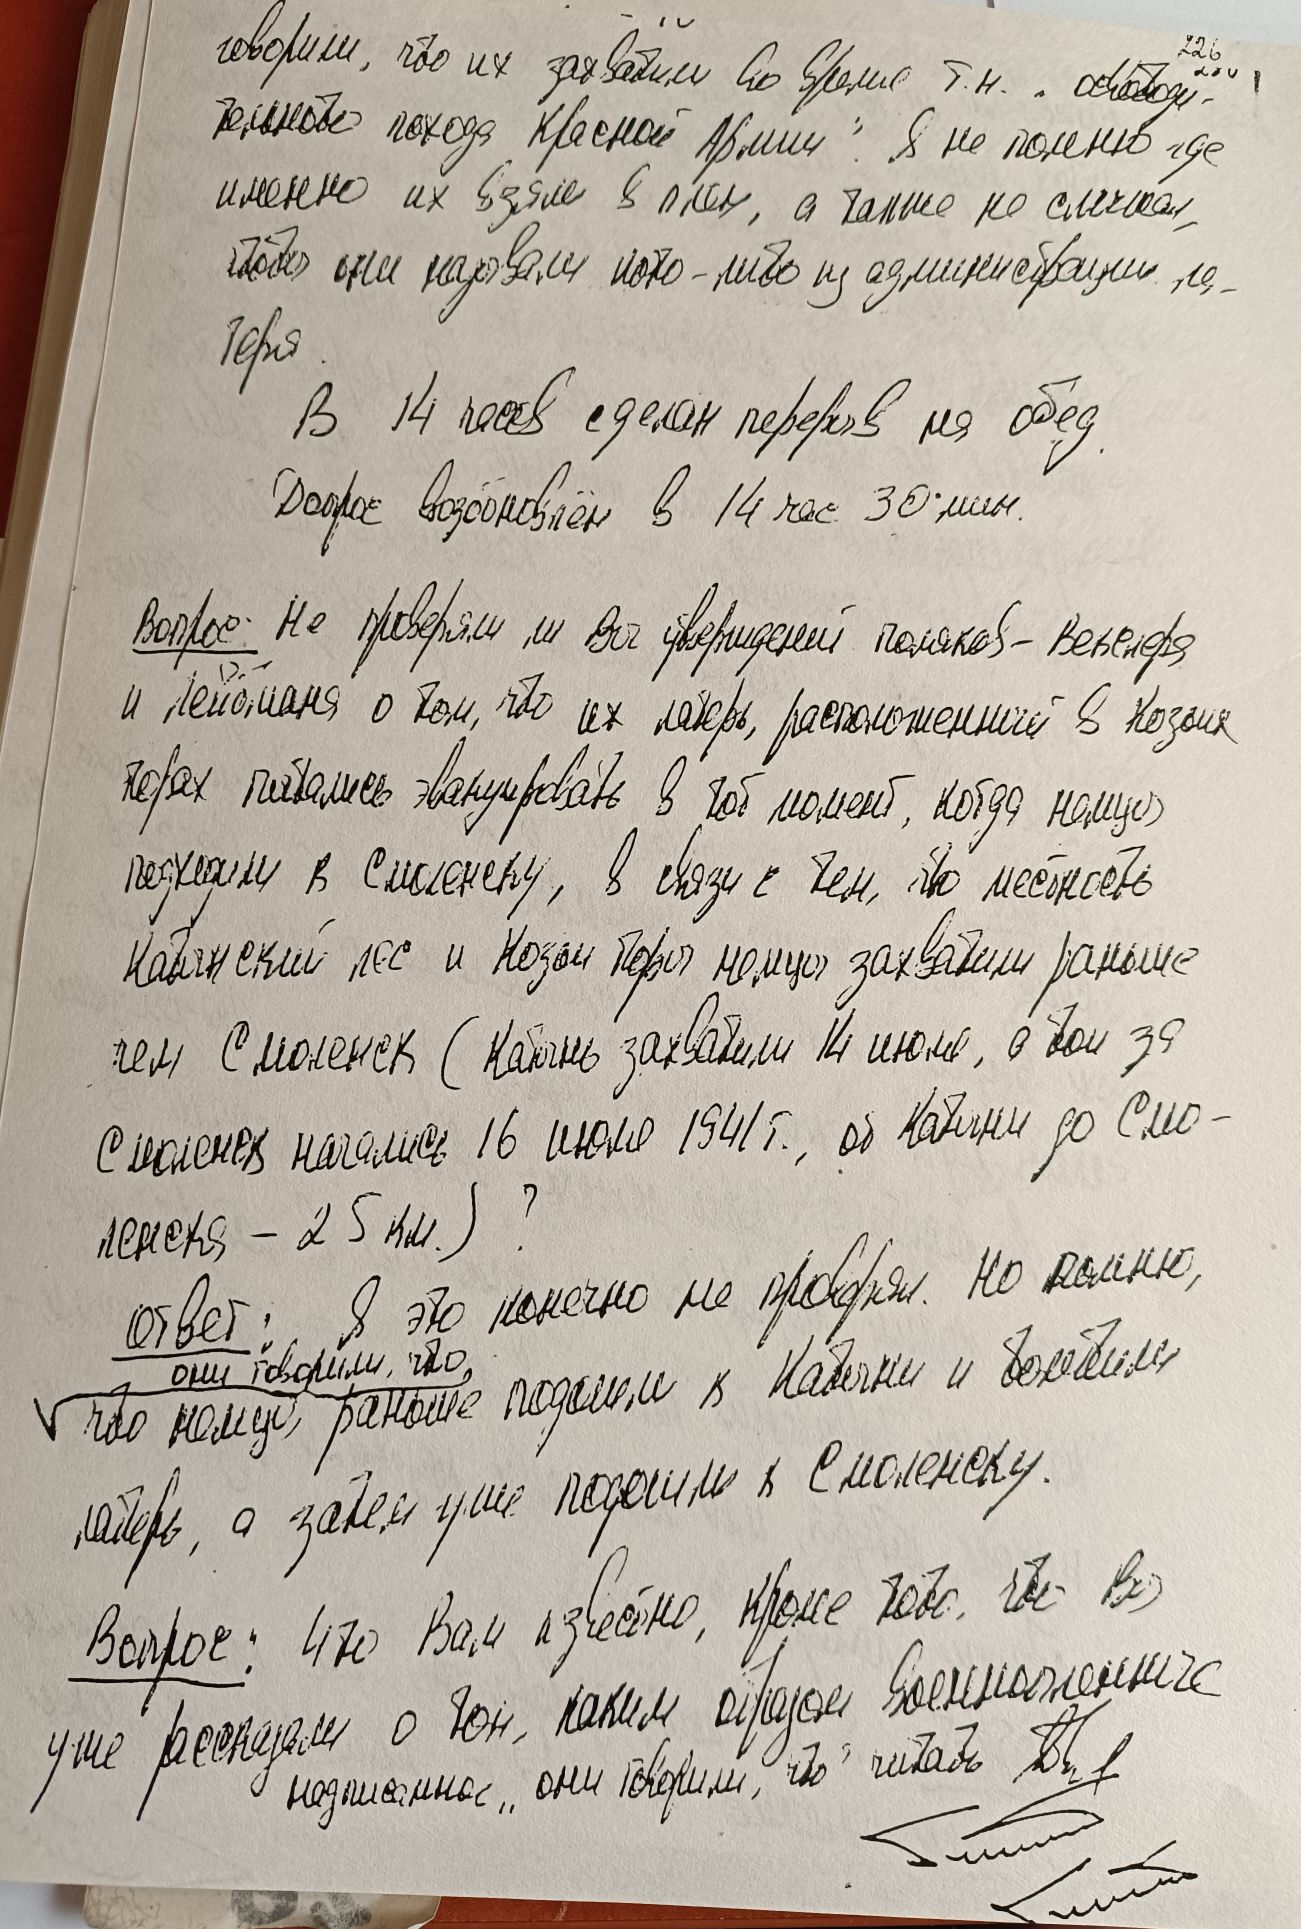 226
говорили, что их захватили во время т.н. „освободи-
тельного похода Красной Армии". Я не помню где
именно их взяли в плен, а также не слышал,
чтобы они называли кого-либо из администрации ла-
геря.
В 14 часов сделан перерыв на обед.
Допрос возобновлён в 14 час. 30 мин.
Вопрос: Не проверяли ли Вы утверждений поляков – Векслера
и о том, что их лагерь, расположенный в Козьих
горах пытались эвакуировать в тот момент, когда немцы
подходили к Смоленску, в связи с тем, что местность
Катынский лес и Козьи горы немцы захватили раньше
чем Смоленск (Катынь захватили 14 июля, а бои за
Смоленск начались 16 июля 1941 г., от Катыни до Смо-
ленска – 25 км.) ?
Ответ: Я это конечно не проверял. Но помню,
они говорили, что,
что немцы раньше подошли к Катыни и
лагерь, а затем уже подошли к Смоленску.
Вопрос: Что Вам известно, кроме того, что Вы
уже рассказали о том, каким образом военнопленные
надписанное „они говорили, что" читать